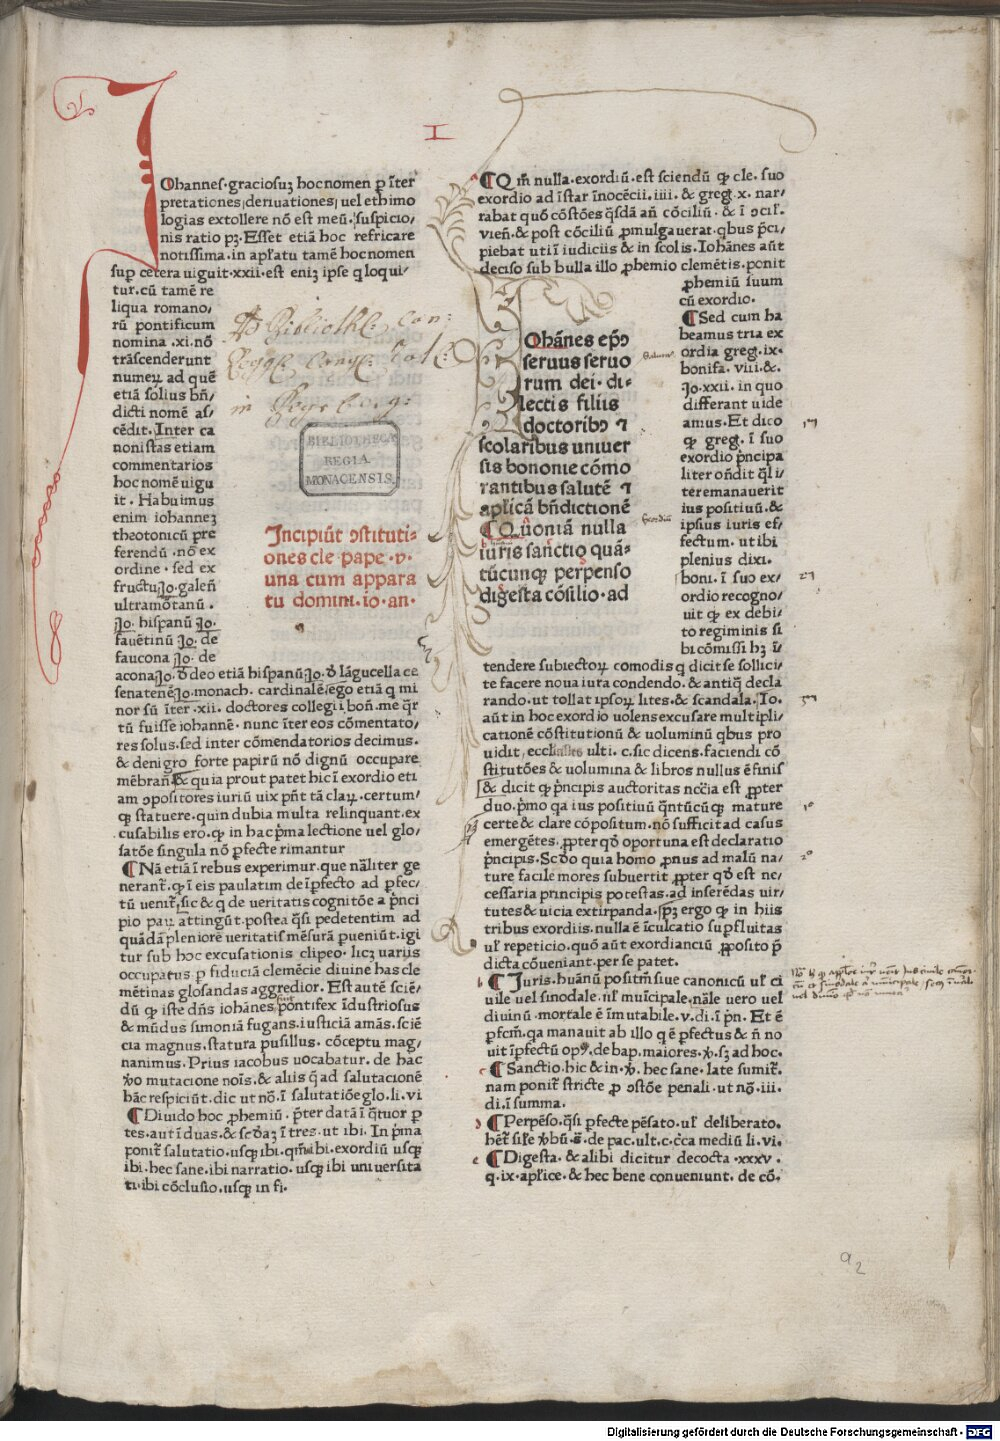 I
Iohannes·graciosuʒ hoc nomen ꝑ īter
pretationes|deriuationes|uel ethimo
logias extollere nō est meū. suspicio/
nis ratio pʒ. Esset etiā hoc refricare
notissima. in apl̄atu tamē hoc nomen
suꝑ cetera uiguit·xxii·est eniʒ ipse q̄ loqui/
tur. cū tamē re
liqua romano/
rū pontificum
nomina .xi. nō
trāscenderunt
numeꝝ ad quē
etiā solius bn̄/
dicti nomē as/
cēdit. Inter ca
nonistas etiam
commentarios
hoc nomē uigu
it. Habuimus
enim iohanneʒ
theotonicū pre
ferendū ·nō ex
ordine · sed ex
fructu Jo·galen̄
ultramōtanū ·
Jo· hispanū Jo·
fauētinū Jo· de
faucona Jo· de
acona Jo· ꝺ̄ deo etiā hispanū Jo· ꝺ̄ lāgucella ce
senatenē Jo· monach. cardinalē|ego etiā q̄ mi
nor sū īter ·xii· doctores collegii bon̄. me q̄r
tū fuisse iohannē · nunc īter eos cōmentato/
res solus. sed inter cōmendatorios decimus.
& denigro forte papirū nō dignū occupare
mēbran̄ & quia prout patet hic ī exordio eti
am ↄpositores iuriū uix pn̄t tā claꝝ. certum/
qꝫ statuere. quin dubia multa relinquant. ex
cusabilis ero. qꝫ in hac p̄ma lectione uel glo/
satōe singula nō ꝑfecte rimantur
¶ Nā etiā ī rebus experimur. que nāliter ge
nerant̄. qꝫ ī eis paulatim de īꝑfecto ad ꝑfec/
tū uenit̄. sic & q̄ de ueritatis cognitōe a p̄nci
pio paꝝ attingūt. postea q̄si pedetentim ad
quādā pleniorē ueritatis mēsurā ꝑueniūt. igi
tur sub hoc excusationis clipeo. licʒ uariis
occupatus ꝑ fiduciā clemēcie diuine has cle
mētinas glosandas aggredior. Est autē sciē/
dū qꝫ iste dn̄s iohānes pontifex īdustriosus
& mūdus simoniā fugans. iusticiā amās. sciē
cia magnus. statura pusillus. cōceptu mag/
nanimus. Prius iacobus uocabatur. de hac
ꝟo mutacione nois̄. & aliis q̄ ad salutacionē
hāc respiciūt. dic ut nō. ī salutatiōe glo. li. vi
¶ Diuido hoc ꝓhemiū. p̄ter datā ī q̄tuor ꝑ
tes. aut ī duas. & scd̄aʒ ī tres. ut ibi. In p̄ma
ponit̄ salutatio. usqꝫ ibi. qm̄ ibi. exordiū usqꝫ
ibi. hec sane. ibi narratio. usqꝫ ibi uniuersita
ti. ibi cōclusio. usqꝫ in fi.
BIBLIOTHECA
REGIA
MONACENSIS.
Incipiūt ↄstituti-
ones cle pape ·v·
una cum appara
tu domini. io·an·
¶ Qm̄ nulla. exordiū. est sciendū qꝫ cle. suo
exordio ad īstar īnocēcii. iiii. & greg. x. nar/
rabat quō cōstōes q̄sdā an̄ cōciliū. & ī ↄcil̄.
vien̄. & post cōciliū ꝓmulgauerat. qbus p̄ci/
piebat uti ī iudiciis & in scolis. Iohānes aūt
deciso sub bulla illo ꝓhemio clemētis. ponit
ꝓhemiū suum
cū exordio.
¶ Sed cum ha
beamus tria ex
ordia greg. ix.
bonifa. viii. &.
Jo. xxii. in quo
differant uide
amus. Et dico
qꝫ greg. ī suo
exordio p̄ncipa
liter on̄dit q̄l i/
ter emanauerit
ius positiuū. &
ipsius iuris ef/
fectum. ut ibi
plenius dixi.
boni. ī suo ex/
ordio recogno/
uit qꝫ ex debi/
to regiminis si
bi cōmissi hʒ ī/
Iohānes ep̄ↄ
seruus seruo
rum dei· di-
lectis filiis
doctoribↄ ⁊
scolaribus uniuer
sis bononie cōmo
rantibus salutē ⁊
apl̄icā bn̄dictionē
¶ Quoniā nulla
iuris sanctio quā-
tūcunqꝫ perpenso
digesta cōsilio · ad
tendere subiectoꝝ comodis q̄ dicit se sollici/
te facere noua iura condendo. & antiq̄ decla
rando. ut tollat ipsoꝝ lites. & scandala. Io.
aūt in hoc exordio uolens excusare multipli/
cationē cōstitutionū & uoluminū qbus pro
uidit, ecclesiastes ulti. c. sic dicens. faciendi cō
stitutōes & uolumina & libros nullus ē finis
& dicit qꝫ p̄ncipis auctoritas nccīa est ꝓpter
duo. p̄mo qa ius positiuū q̄ntūcūqꝫ mature
certe & clare cōpositum. nō sufficit ad casus
emergētes. ꝓpter qd̄ oportuna est declaratio
p̄ncipis. Scd̄o quia homo ꝓnus ad malū na/
ture facile mores subuertit ꝓpter qd̄ est ne/
cessaria principis potestas. ad inserēdas uir/
tutes & uicia extirpanda. pʒ ergo qꝫ in hiis
tribus exordiis. nulla ē īculcatio suꝑfluitas
ul̄ repeticio. quō aūt exordianciū ꝓposito p̄
dicta cōueniant. per se patet.
¶ Juris. huānū positm̄ siue canonicū ul̄ ci
uile uel sinodale. ul̄ muīcipale. nāle uero uel
diuinū. mortale ē īmutabile. v. di. ī pn̄. Et ē
ꝑfcm̄. qa manauit ab illo q̄ ē ꝑfectus & n̄ no
uit īꝑfectū opꝰ. de bap. maiores. ꝟ. sʒ ad hoc.
¶ Sanctio. hic & in. ꝟ. hec sane. late sumit̄.
nam ponit̄ stricte ꝑ ↄstōe penali. ut nō. iii.
di. ī summa.
¶ Perpēso. q̄si ꝑfecte pēsato. ul̄ deliberato.
hēt̄ sil̄e ꝟbū. ff. de pac. ult. c. cc̄a mediū li. vi.
¶ Digesta. & alibi dicitur decocta .xxxv.
q. ix. apl̄ice. & hec bene conueniunt. de cō.
a2
Digitalisierung gefördert durch die Deutsche Forschungsgemeinschaft - DFG